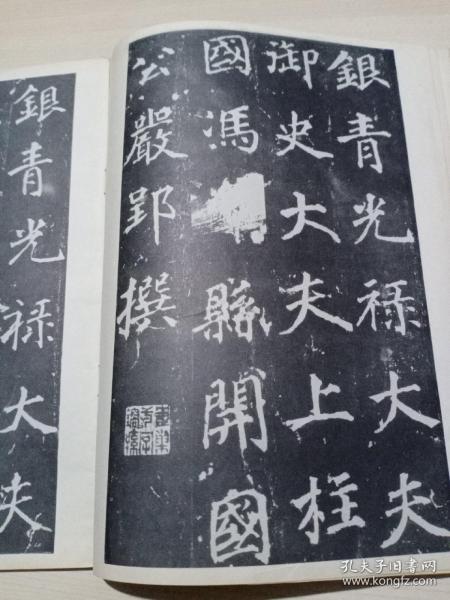 銀青光禄大夫
御史大夫上柱
國馮縣開國
公嚴郢撰
銀青光禄大夫
孔夫子旧书网
www.kongfz.com